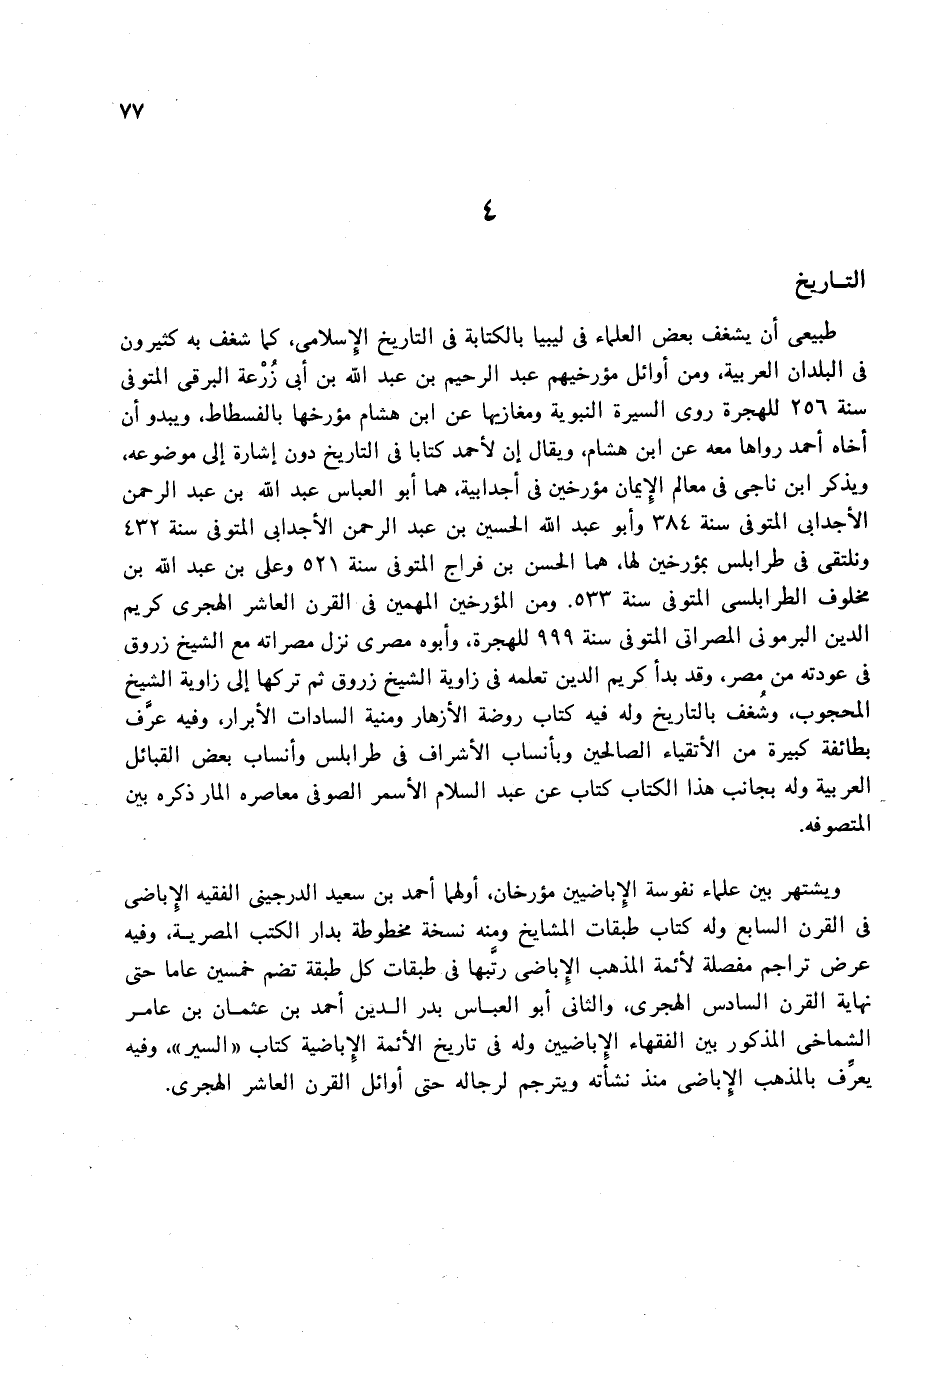 ٧٧
٤
التـاريخ
طبيعى أن يشغف بعض العلماء فى ليبيا بالكتابة فى التاريخ الإسلامى، كما شغف به كثيرون
فى البلدان العربية، ومن أوائل مؤرخيهم عبد الرحيم بن عبد الله بن أبى زُرْعة البرقى المتوفى
سنة ٢٥٦ للهجرة روى السيرة النبوية ومغازيها عن ابن هشام مؤرخها بالفسطاط، ويبدو أن
أخاه أحمد رواها معه عن ابن هشام، ويقال إن لأحمد كتابا فى التاريخ دون إشارة إلى موضوعه،
ويذكر ابن ناجى فى معالم الإيمان مؤرخين فى أجدابية، هما أبو العباس عبد الله بن عبد الرحمن
الأجدابى المتوفى سنة ٣٨٤ وأبو عبد الله الحسين بن عبد الرحمن الأجدابى المتوفى سنة ٤٣٢
ونلتقى فى طرابلس بمؤرخين لها، هما الحسن بن فراج المتوفى سنة ٥٢١ وعلى بن عبد الله بن
مخلوف الطرابلسى المتوفى سنة ٥٣٣. ومن المؤرخين المهمين فى القرن العاشر الهجرى كريم
الدين البرمونى المصراتى المتوفى سنة ٩٩٩ للهجرة، وأبوه مصرى نزل مصراته مع الشيخ زروق
فى عودته من مصر، وقد بدأ كريم الدين تعلمه فى زاوية الشيخ زروق ثم تركها إلى زاوية الشيخ
المحجوب، وشُغف بالتاريخ وله فيه كتاب روضة الأزهار ومنية السادات الأبرار، وفيه عرَّف
بطائفة كبيرة من الأتقياء الصالحين وبأنساب الأشراف فى طرابلس وأنساب بعض القبائل
العربية وله بجانب هذا الكتاب كتاب عن عبد السلام الأسمر الصوفى معاصره المار ذكره بين
المتصوفه.
ويشتهر بين علماء نفوسة الإباضيين مؤرخان، أولهما أحمد بن سعيد الدرجينى الفقيه الإباضى
فى القرن السابع وله كتاب طبقات المشايخ ومنه نسخة مخطوطة بدار الكتب المصريـة، وفيه
عرض تراجم مفصلة لأئمة المذهب الإباضى رتَّبها فى طبقات كل طبقة تضم خمسين عاما حتى
نهاية القرن السادس الهجرى، والثانى أبو العبـاس بدر الـدين أحمد بن عثمـان بن عامـر
الشماخى المذكور بين الفقهاء الإباضيين وله فى تاريخ الأئمة الإباضية كتاب «السير»، وفيه
يعرِّف بالمذهب الإباضى منذ نشأته ويترجم لرجاله حتى أوائل القرن العاشر الهجرى.